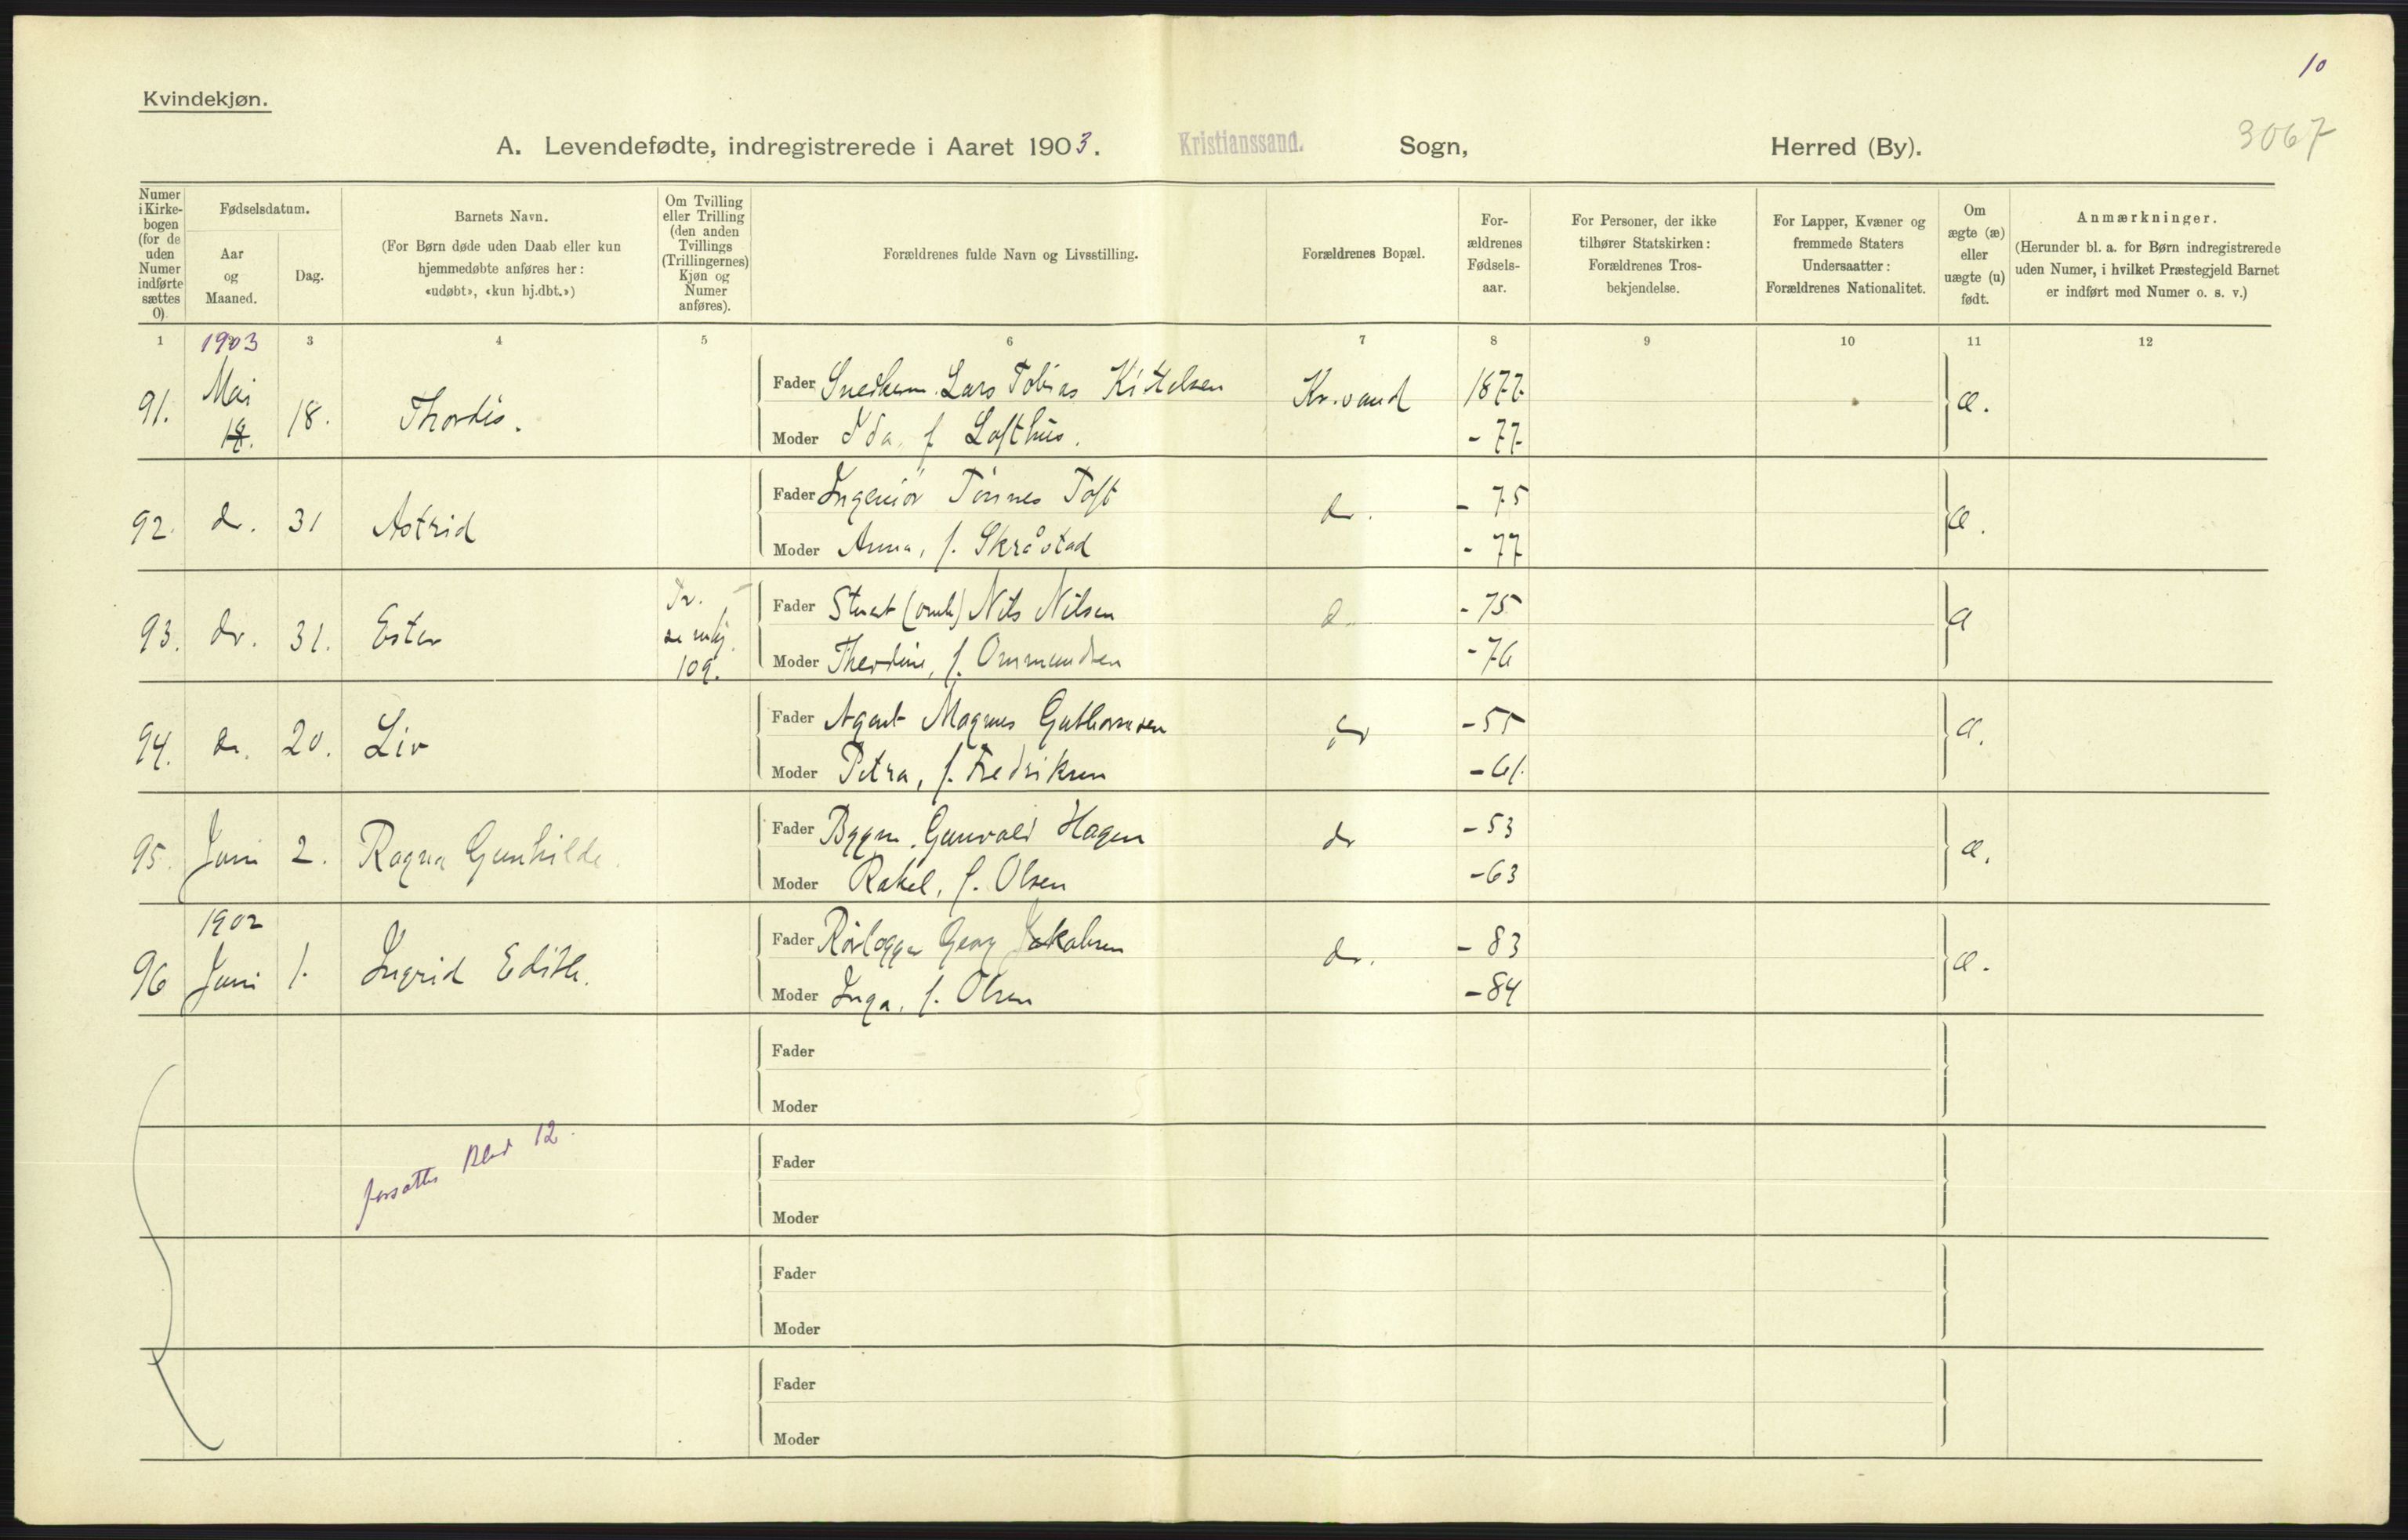 10
Kvindekjøn.
3067
A. Levendefødte, indregistrerede i Aaret 1903. Kristianssand. Sogn, Herred (By).
Numer i Kirke- bogen (for de uden Numer indførte sættes 0)
Fødselsdatum.
Aar og Maaned.
Dag.
Barnets Navn.
(For Børn døde uden Daab eller kun
hjemmedøbte anføres her:
«udøbt», «kun hj.dbt.»)
Om Tvilling
eller Trilling
(den anden
Tvillings
(Trillingernes)
Kjøn og
Numer
anføres).
Forældrenes fulde Navn og Livsstilling.
Forældrenes Bopæl.
For-
ældrenes
Fødsels-
aar.
For Personer, der ikke
tilhører Statskirken:
Forældrenes Tros-
bekjendelse.
For Lapper, Kvæner og
fremmede Staters
Undersaatter:
Forældrenes Nationalitet.
Om
ægte (æ)
eller
uægte (u)
født.
Anmærkninger.
(Herunder bl. a. for Børn indregistrerede
uden Numer, i hvilket Præstegjeld Barnet
er indført med Numer o. s. v.)
1 1903 3 4 5 6 7 8 9 10 11 12
91. Mai 18. Thordis. Fader Lars Tobias Kittelsen Kr.sand 1877 æ.
Moder Ida, f. Lofthus. - 77
92. do. 31 Astrid Fader Ingeniør Tønnes Toft do. - 75 æ.
Moder Anna, f. Skråstad - 77
93. do. 31. Ester 109. Fader Nils Nilsen do - 75 æ
Moder f. Ommundsen - 76
94. do. 20. Liv Fader Agent Magnus Guthormsen do - 55 æ.
Moder Petra, f. Fredriksen - 61.
95. Juni 2. Ragna Gunhilde. Fader Bygm. Gunvald Hagen do - 53 æ.
Moder Rakel, f. Olsen - 63
1902
96 Juni 1. Ingrid Edith. Fader Rørlægger Georg Jakobsen do. - 83 æ.
Moder Inga, f. Olsen - 84
Fader
Moder
forsættes Blad 12.
Fader
Moder
Fader
Moder
Fader
Moder